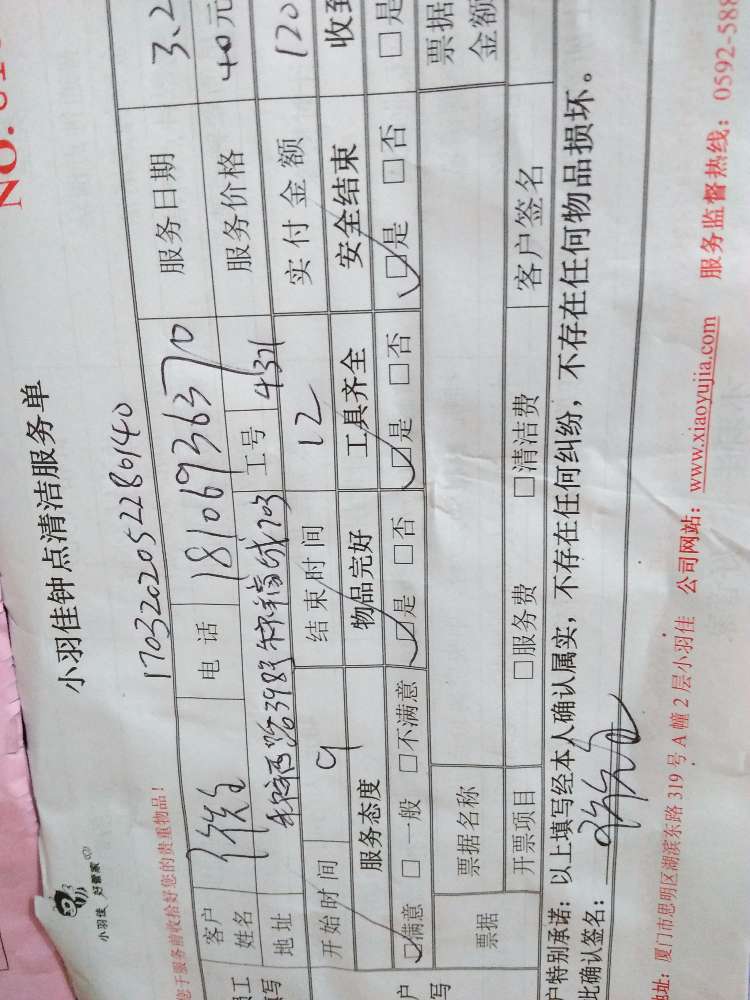 小羽佳 好管家
小羽佳钟点清洁服务单
NO.
1703202052280140
您于服务前收拾好您的贵重物品!
客户姓名 电话 18106936370 服务日期 3.2
地址 398 703 工号 4371 服务价格 40元
开始时间 9 结束时间 12 实付金额 120
服务态度 物品完好 工具齐全 安全结束 收到
☑满意 □一般 □不满意 ☑是 □否 ☑是 □否 ☑是 □否 □是
票据 票据名称 票据金额
开票项目 □服务费 □清洁费 客户签名
户特别承诺:以上填写经本人确认属实,不存在任何纠纷,不存在任何物品损坏。
此确认签名:
地址:厦门市思明区湖滨东路319号A幢2层小羽佳 公司网站:www.xiaoyujia.com 服务监督热线:0592-588